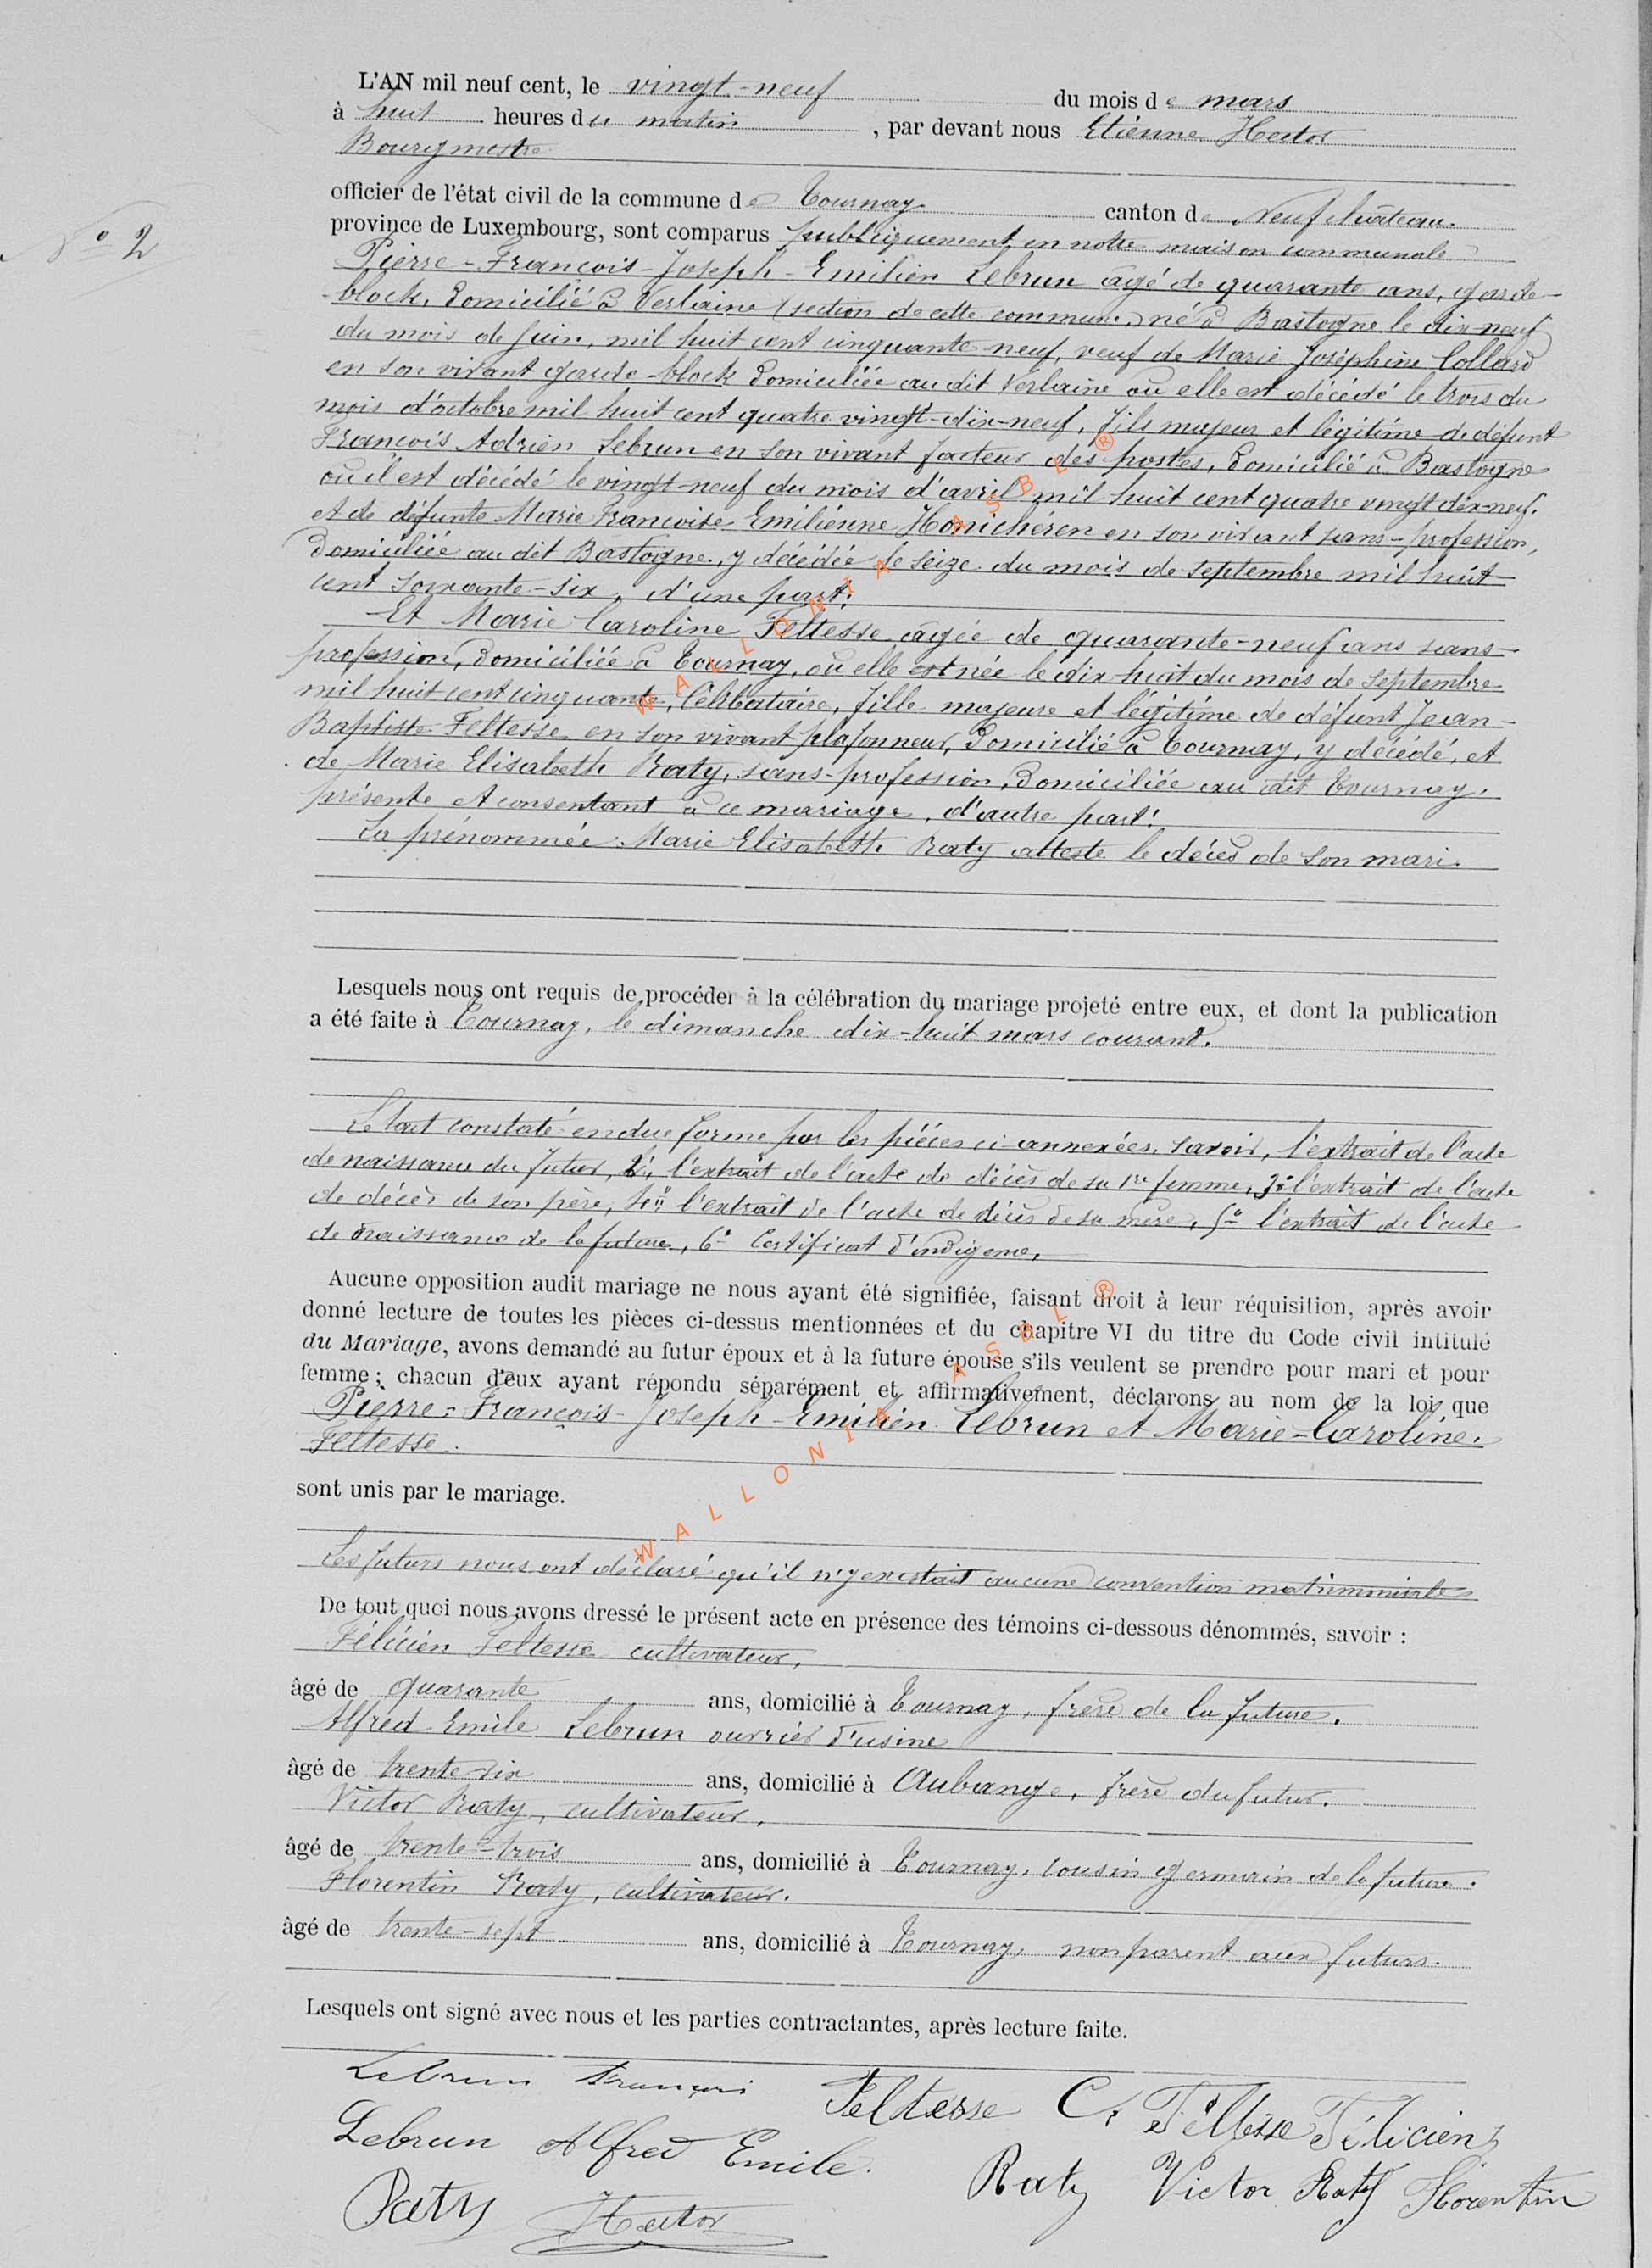 L'AN mil neuf cent, le vingt-neuf du mois de mars
à huit heures du matin, par devant nous Etienne Hector
Bourgmestre
officier de l'état civil de la commune de Tournay canton de Neufchâteau.
N° 2
province de Luxembourg, sont comparus publiquement en notre maison communale
Pierre-François-Joseph-Emilien Lebrun âgé de quarante ans, garde-
block, domicilié à Verlaine (section de cette commune,) né à Bastogne le dix-neuf
du mois de Juin, mil huit cent cinquante neuf, veuf de Marie Joséphine Collard
en son vivant garde-block domiciliée au dit Verlaine où elle est décédé le trois du
mois d'octobre mil huit cent quatre vingt-dix-neuf, fils majeur et légitime de défunt
François Adrien Lebrun en son vivant facteur des postes, domicilié à Bastogne
où il est décédé le vingt-neuf du mois d'avril mil huit cent quatre vingt dix-neuf.
et de défunte Marie Françoise Emilienne Honichéren en son vivant sans-profession,
domiciliée au dit Bastogne, y décédée le seize du mois de septembre mil huit
cent soixante-six, d'une part;
Et Marie Caroline Feltesse âgée de quarante-neuf ans sans-
profession, domiciliée à Tournay, où elle est née le dix-huit du mois de Septembre
mil huit cent cinquante, Célibataire, fille majeure et légitime de défunt Jean-
Baptiste Feltesse en son vivant plafonneur, domicilié à Tournay, y décédé, et
de Marie Elisabeth Raty, sans-profession, domiciliée au dit Tournay,
présente et consentant à ce mariage, d'autre part!
La prénommée Marie Elisabeth Raty atteste le décès de son mari.
Lesquels nous ont requis de procéder à la célébration du mariage projeté entre eux, et dont la publication
a été faite à Tournay, le dimanche dix-huit mars courant.
Le tout constaté en due forme par les pièces ci-annexées, savoir, l'extrait de l'acte
de naissance du futur, 2°, l'extrait de l'acte de décès de sa 1re femme, 3° l'extrait de l'acte
de décès de son père, 4° l'extrait de l'acte de décès de sa mère, 5° l'extrait de l'acte
de naissance de la future, 6° Certificat d'indigence,
Aucune opposition audit mariage ne nous ayant été signifiée, faisant droit à leur réquisition, après avoir
donné lecture de toutes les pièces ci-dessus mentionnées et du chapitre VI du titre du Code civil intitulé
du Mariage, avons demandé au futur époux et à la future épouse s'ils veulent se prendre pour mari et pour
femme; chacun d'eux ayant répondu séparément et affirmativement, déclarons au nom de la loi, que
Pierre-François-Joseph-Emilien Lebrun et Marie-Caroline
Feltesse.
sont unis par le mariage.
Les futurs nous ont déclaré qu'il n'y existait aucune convention matrimoniale
De tout quoi nous avons dressé le présent acte en présence des témoins ci-dessous dénommés, savoir :
Félicien Feltesse cultivateur,
âgé de quarante ans, domicilié à Tournay, frère de la future.
Alfred Emile Lebrun ouvrier d'usine
âgé de trente-six ans, domicilié à Aubange, frère du futur.
Victor Raty, cultivateur,
âgé de trente-trois ans, domicilié à Tournay, cousin germain de la future.
Florentin Raty, cultivateur.
âgé de trente-sept ans, domicilié à Tournay, non parent aux futurs.
Lesquels ont signé avec nous et les parties contractantes, après lecture faite.
Lebrun François Feltesse C. Feltesse Félicien
Lebrun Alfred Emile. Raty Victor Raty Florentin
Raty Hector
WALLONIA ASBL ®
WALLONIA ASBL ®